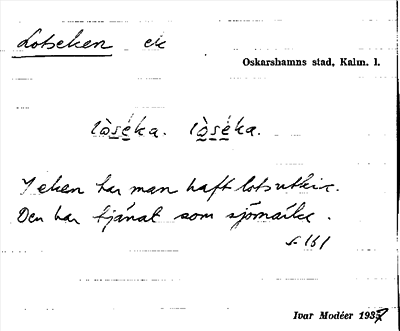 Lotseken ek
Oskarshamns stad, Kalm. l.
lò̱sé̱ka. lò̱sé̱ka.
I eken har man haft lotsutkik.
Den har tjänat som sjömärke.
s. 161
Ivar Modéer 1937